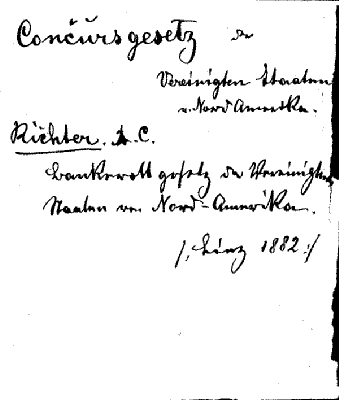 Concursgesetz der
Vereinigten Staaten
v. Nord Amerika.
Richter. A. C.
Bankerottgesetz der Vereinigten
Staaten von Nord-Amerika.
/: Linz 1882 :/